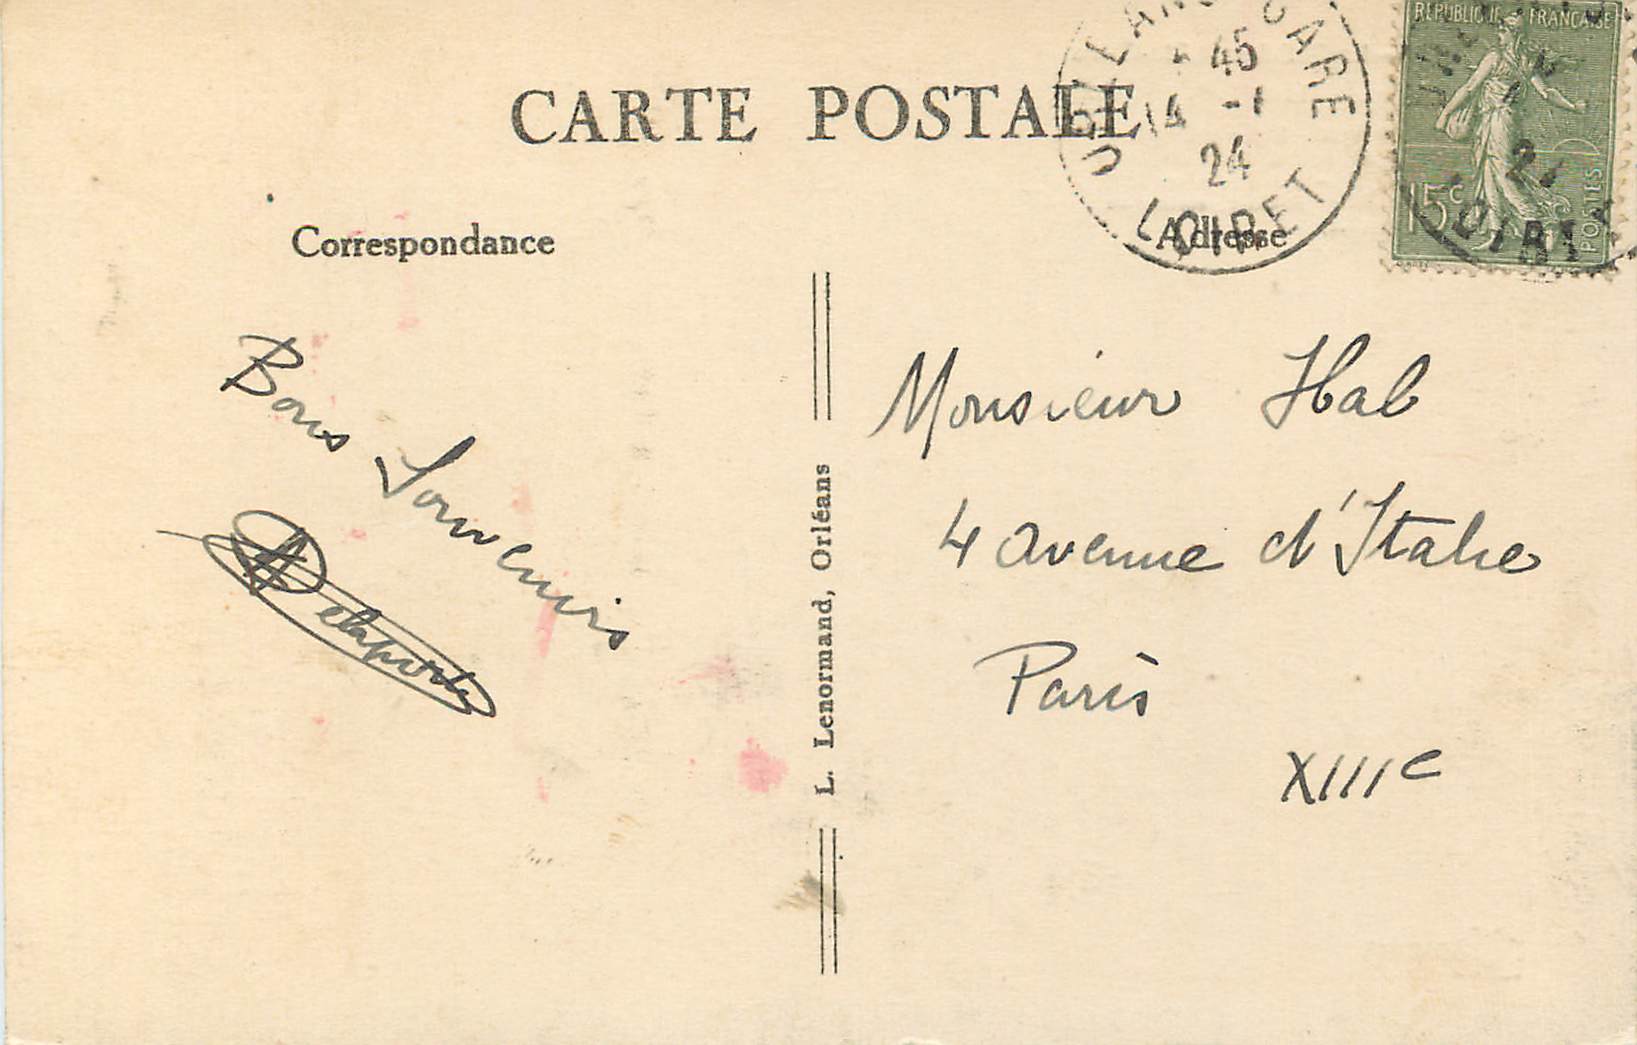 CARTE POSTALE
Correspondance
Adresse
GARE
45
14 -1
24
LOIRET
REPUBLIQUE FRANCAISE
15c
POSTES
Bons Souvenirs
Delaporte
L. Lenormand, Orléans
Monsieur Hal
4 avenue d'Italie
Paris
XIIIe